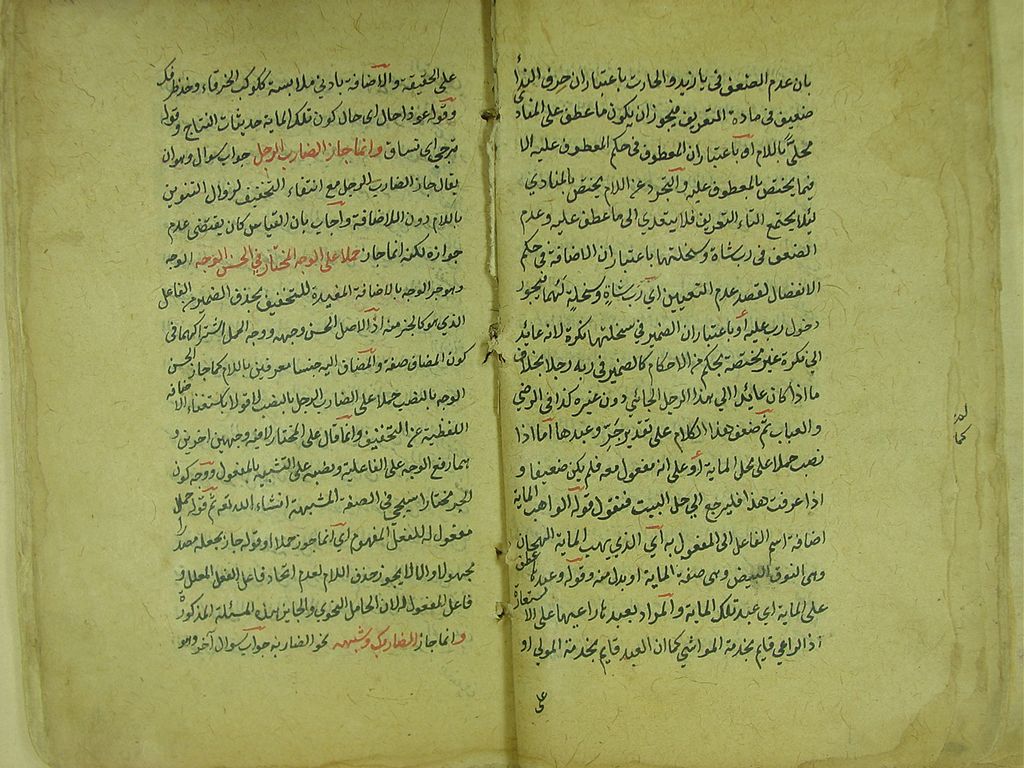 بان عدم الضعف في يا زيد والحارث باعتباران حرف الندأ
ضعيف في مادة التعريف فيجوز ان يكون ما عطف على المناد
محلىً باللام او باعتباران المعطوف في حكم المعطوف عليه الا
فيما يختص بالمعطوف عليه والتجرد عن اللام يختص بالمنادي
لئلا يجتمع التاء التعريف فلا يتعدي الى ما عطف عليه وعدم
الضعف في رب شاة وسخلتها باعتباران الاضافة في حكم
الانفصال لقصد عدم التعيين اي رب شاةٍ وسخلةٍ لهما فيجوز
دخول رب عليه أو باعتباران الضمير في سخلتها نكرة لانه عايد
الى نكرة غير مختصة بحكم من الاحكام كالضمير في ربه رجلا بخلاف
ما اذا كان عايدا الي بهذا الرجل الجائي دون غيره كذا في الرضي
والعباب ثم ضعف هذا الكلام على تقدير جرّ وعبدها أما اذا
نصب حملا على محل الماية أو على انه مفعول معه فلم يكن ضعيفا و
اذا عرفت هذا فليرجع الي حل البيت فنقول قوله الواهب الماية
اضافة اسم الفاعل الى المفعول به أي الذي يهب الماية الهجان
وهي النوق البيض وهي صفة الماية او بدل منه وقوله وعبدها عطف
على الماية اي عبد تلك الماية والمراد بعبدها راعيها على الاستعارة
اذ الراعي قايم بخدمة المواشي كما ان العبد قايم بخدمة المولى او
على
على الحقيقة والاضافة بادنى ملابسة ككوكب الخرقاء وخذ طرفك
وقوله عوذا حال اي حال كون تلك الماية حديثات النتاج وقوله
تزجي اي تساق وانما جاز الضارب الرجل جواب سوال وهو ان
يقال جاز الضارب الرجل مع انتفاء التخفيف لزوال التنوين
باللام دون اللاضافة واجاب بان القياس كان يقتضي عدم
جوازه لكنه انما جاز حملا على الوجه المختار في الحسن الوجه الوجه
وهو جر الوجه بالاضافة المفيدة للتخفيف بحذف الضمير من الفاعل
الذي هو كالجزء منه اذ الاصل الحسن وجهه ووجه الحمل اشتراكهما في
كون المضاف صفة والمضاف اليه جنسا معرفين باللام كما جاز الحسن
الوجه بالنصب حملا على الضارب الرجل بالنصب لا قولا باستغناء الاضافه
اللفظية عن التخفيف وانما قال على المختار لان فيه وجهين اخرين و
هما رفع الوجه على الفاعلية ونصبه على التشبيه بالمفعول ووجه كون
الجر مختارا سيجي في الصفة المشبهة انشاء الله تعه ثم قوله حملا
مفعول له للفعل المفهوم اي انما جوز حملا او قوله جاز بجعله مصدرا
مجهولا والا لا يجوز حذف اللام لعدم اتحاد فاعل الفعل المعلل و
فاعل المفعول له لان الحامل النحوي والجايز هذه المسئلة المذكورة
وانما جاز الضاربك وشبهه نحو الضاربه جواب سوال آخر وهو